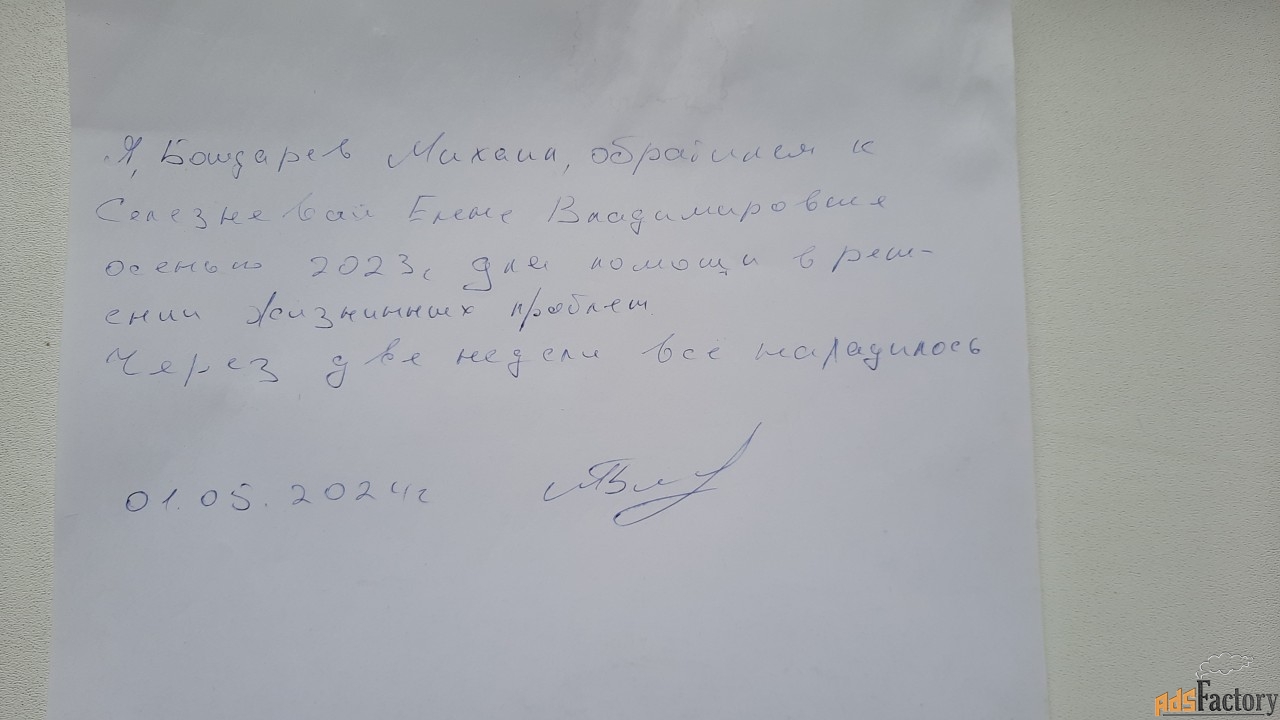 Я, Бондарев Михаил, обратился к
Селезневай Елене Владимировне
осенью 2023г для помощи в реш-
ении жизнинных проблем.
Через две недели всё наладилось
01.05.2024г
AdsFactory